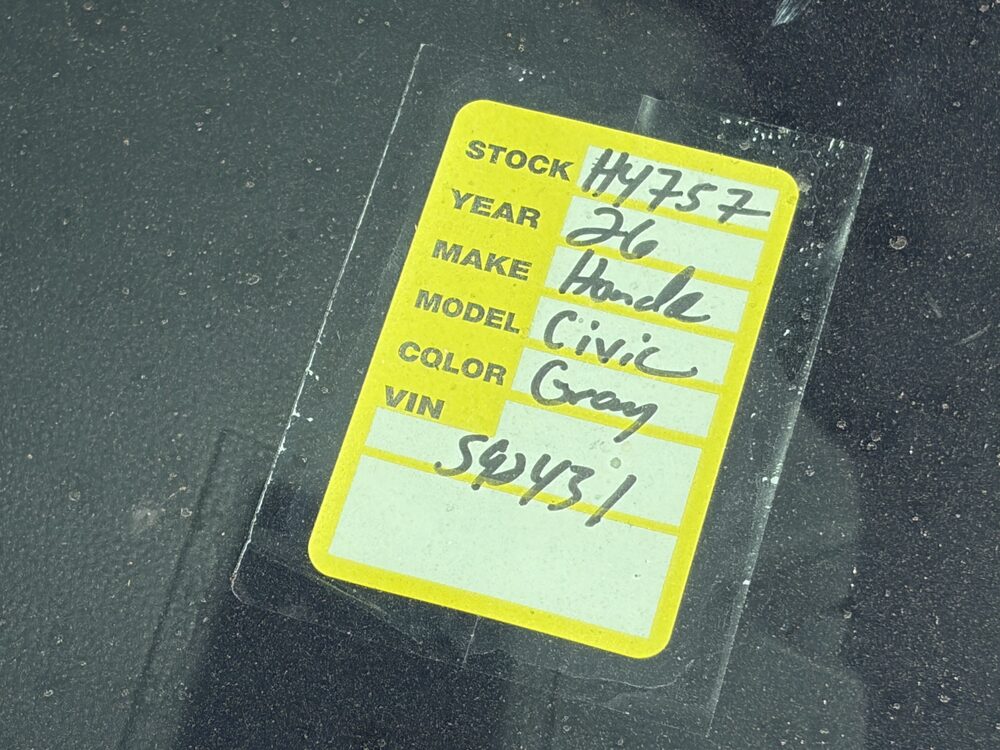 STOCK H4757
YEAR 26
MAKE Honda
MODEL Civic
COLOR Gray
VIN